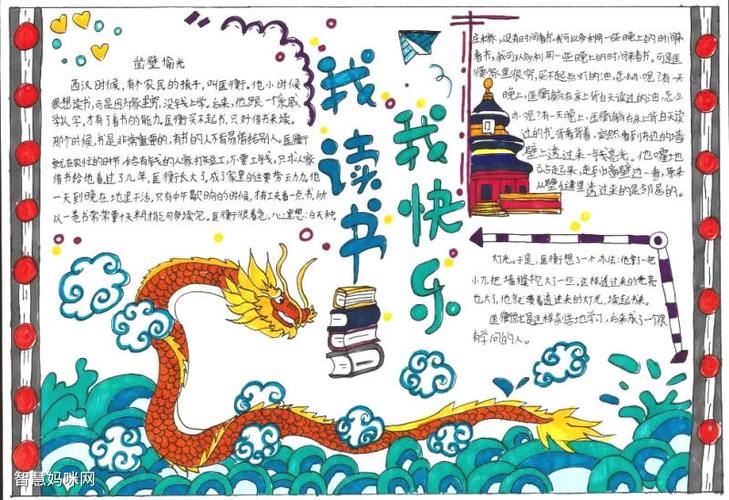 我读书
我快乐
凿壁偷光
西汉时候，有个农民的孩子，叫匡衡。他小时候
很想读书，可是因为家里穷，没钱上学。后来，他跟一个亲戚
学认字，才有了看书的能力。匡衡买不起书，只好借书来读。
那个时候，书是非常贵重的，有书的人不肯轻易借给别人。匡衡
就在农忙的时节，给有钱的人家打短工，不要工钱，只求人家
借书给他看。过了几年，匡衡长大了，成了家里的主要劳动力。他
一天到晚在地里干活，只有中午歇晌的时候，才有工夫看一点书，所
以一卷书常常要十天半月才能够读完。匡衡很着急，心里想：白天种
庄稼，没有时间看书，我可以多利用一些晚上的时间来
看书，我可以多利用一些晚上的时间来看书。可是匡
衡家里很穷，买不起点灯的油，怎么办呢？有一天
晚上，匡衡躺在床上背白天读过的
办呢？有一天晚上，匡衡躺在床上背白天读
过的书。背着背着，突然看到东边的墙
壁上透过来一线亮光。他嚯地
站起来，走到墙壁边一看，原来
从壁缝里透过来的是邻居的
灯光。于是，匡衡想了一个办法：他拿了一把
小刀，把墙缝挖大了一些。这样，透过来的光亮
也大了，他就凑着透进来的灯光，读起书来。
匡衡就是这样刻苦地学习，后来成了一个很
有学问的人。
智慧妈咪网